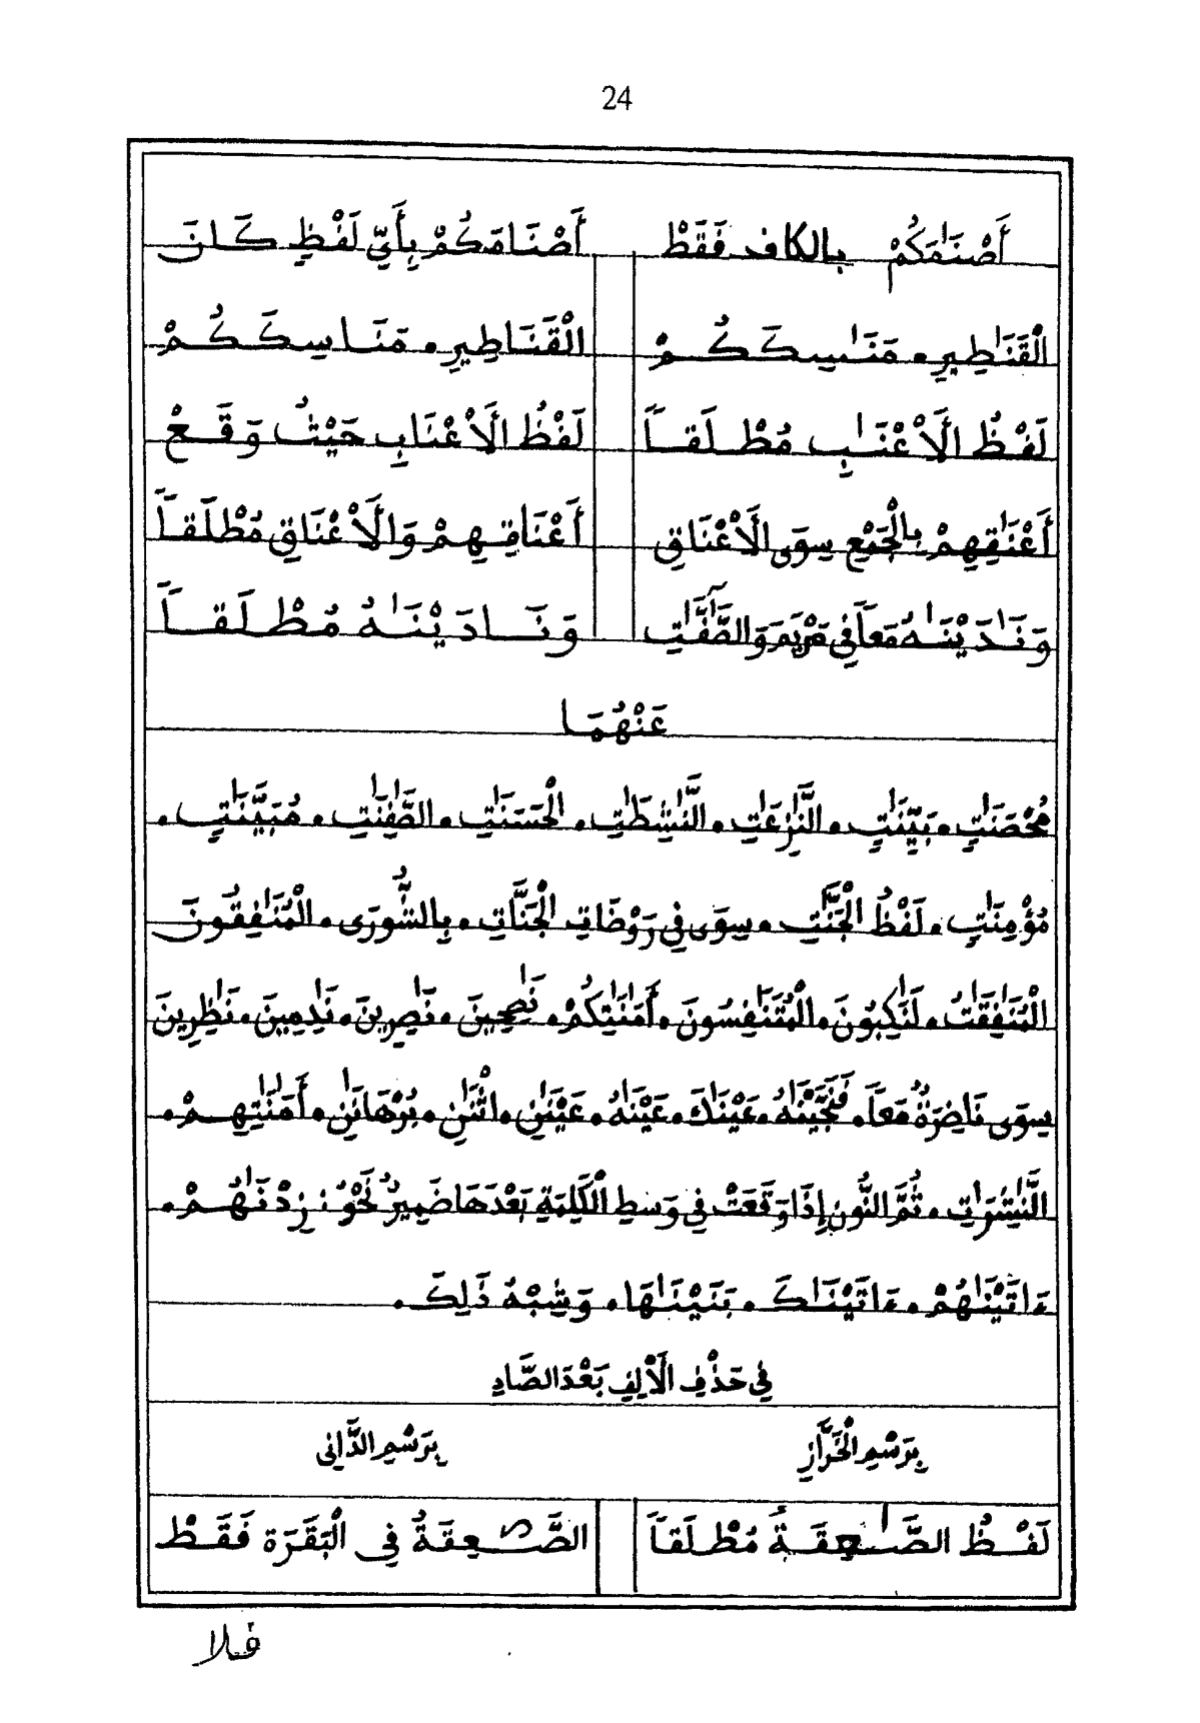 24
أَصْنَٰمَكُمْ بِالكافِ فَقَطْ أَصْنَامَكُمْ بِأَيِّ لَفْظٍ كَانَ
الْقَنَٰطِيرِ . مَنَٰسِكَكُمْ الْقَنَاطِيرِ . مَنَاسِكَكُمْ
لَفْظُ الَاْعْنَٰبِ مُطْلَقاً لَفْظُ الَاْعْنَابِ حَيْثُ وَقَعْ
أَعْنَٰقِهِمْ بِالْجَمْعِ سِوَى الَاْعْنَاقِ أَعْنَاقِهِمْ وَالَاْعْنَاقِ مُطْلَقاً
وَنَٰدَيْنَٰهُ مَعاً فِي مَرْيَمَ وَالصَّٰٓفَّٰتِ وَنَادَيْنَٰهُ مُطْلَقاً
عَنْهُمَا
مُحْصَنَٰتٍ . بَيِّنَٰتٍ . النَّٰزِعَٰتِ . النَّٰشِطَٰتِ . الْحَسَنَٰتِ . الصَّٰفِنَٰتِ . مُبَيِّنَٰتٍ .
مُؤْمِنَٰتٍ . لَفْظُ الْجَنَّٰتِ . سِوَى فِي رَوْضَاتِ الْجَنَّاتِ . بِالشُّورَى . الْمُنَٰفِقُونَ
الْمُنَٰفِقَٰتُ . لَنَٰكِبُونَ . الْمُتَنَٰفِسُونَ . أَمَٰنَٰتِكُمْ . نَٰصِحِينَ . نَٰصِرِينَ . نَٰدِمِينَ . نَٰظِرِينَ
سِوَى نَاضِرَةٌ مَعاً . فَنَجَّيْنَٰهُ . عَيْنَٰكَ . عَيْنَٰهُ . عَيْنَٰنِ . اثْنَٰنِ . بُرْهَانَٰنِ . أَمَٰنَٰتِهِمْ .
النَّٰشِرَٰتِ . ثُمَّ النُّونِ إِذَا وَقَعَتْ فِي وَسَطِ الْكَلِمَةِ بَعْدَهَا ضَمِيرٌ نَحْوُ : زِدْنَٰهُمْ .
ءَاتَيْنَٰهُمْ . ءَاتَيْنَٰكَ . بَنَيْنَٰهَا . وَشِبْهُ ذَلِكَ .
فِي حَذْفِ الَاْلِفِ بَعْدَ الصَّادِ
بِرَسْمِ الْخَرَّازِ بِرَسْمِ الدَّانِي
لَفْظُ الصَّٰعِقَةُ مُطْلَقاً الصَّٰعِقَةُ فِي الْبَقَرَة فَقَطْ
فلا